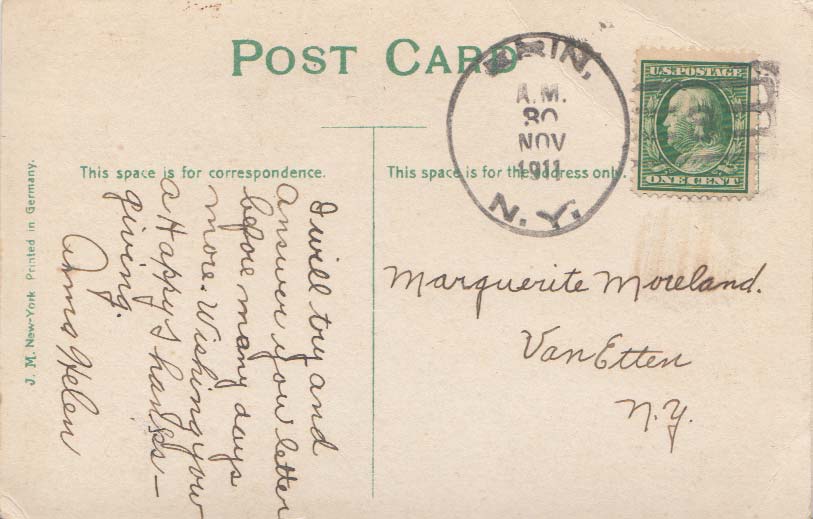 POST CARD
ERIN,
A.M.
30
NOV
1911
N.Y.
U.S. POSTAGE
ONE CENT
This space is for correspondence.
This space is for the address only.
I will try and
answer your letter
before many days
more. Wishing you
a Happy Thanks-
giving.
Anna Helen
Marguerite Moreland.
Van Etten
N.Y.
J. M. New-York Printed in Germany.